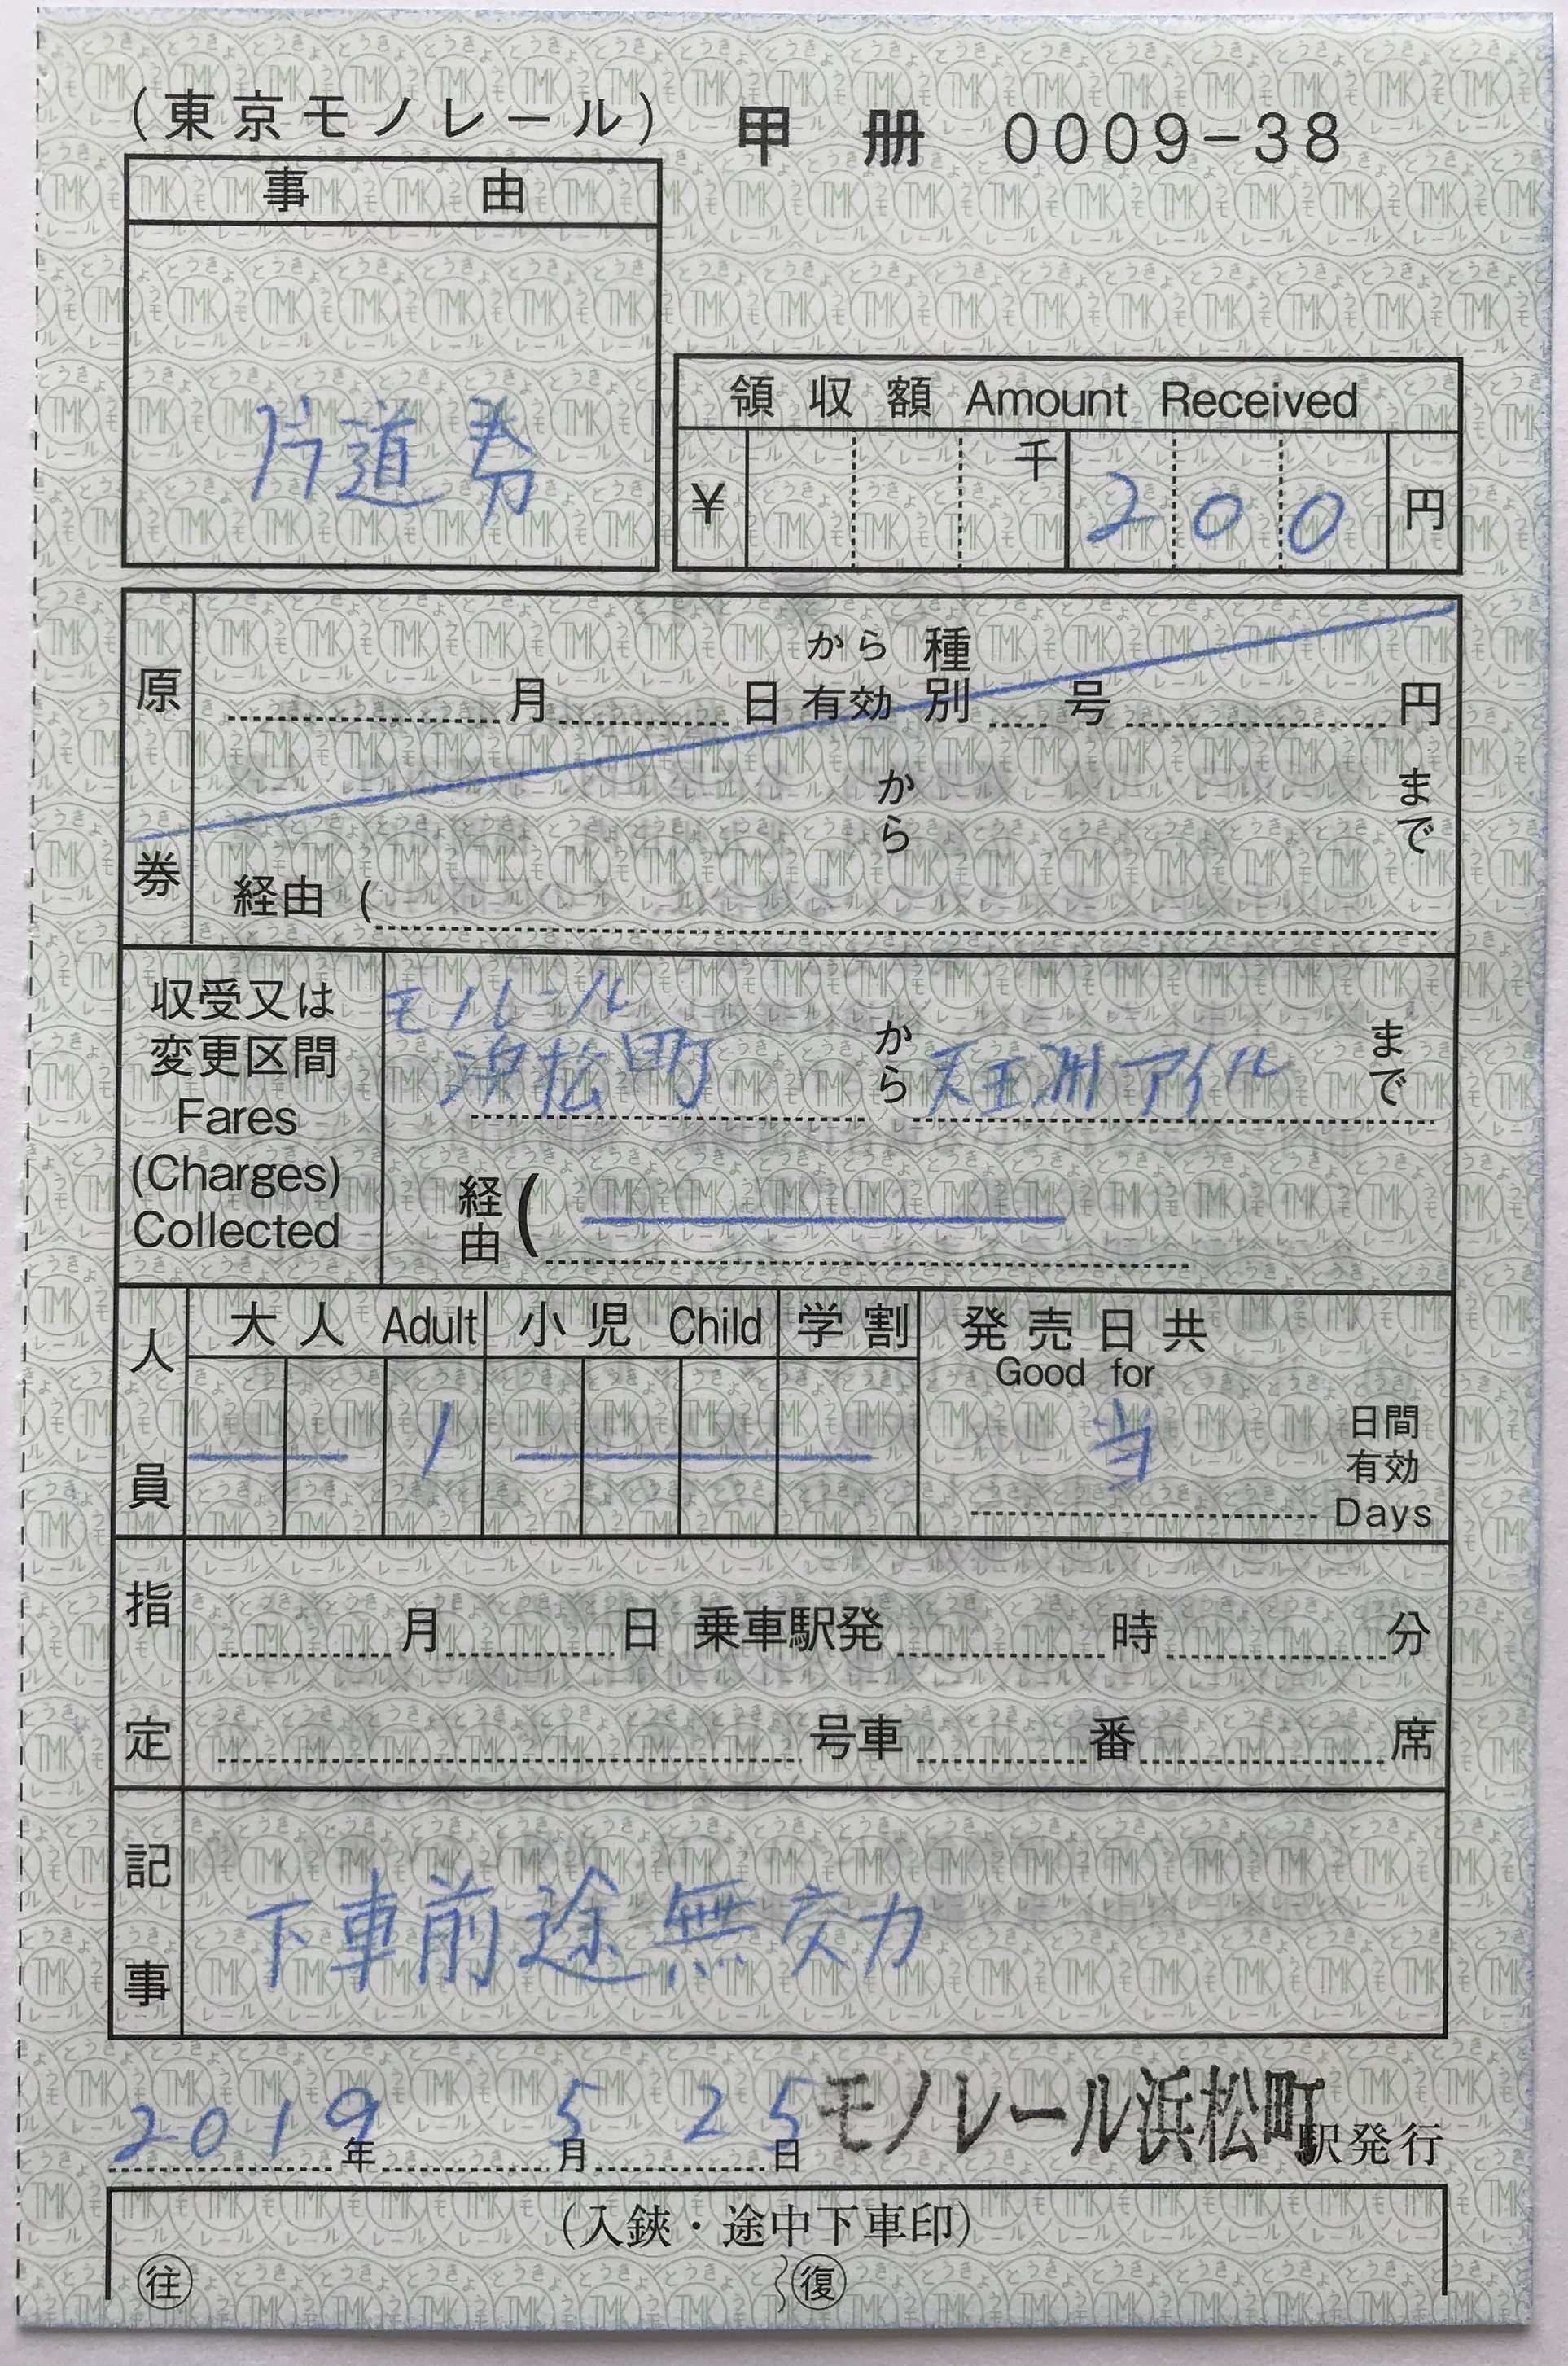 (東京モノレール) 甲 册 0009-38
事由
片道券
領収額 Amount Received
千
¥ 200 円
原券
から 種
月 日 有効 別 号 円
から まで
経由 (
収受又は
変更区間
Fares
(Charges)
Collected
モノレール
浜松町 から 天王洲アイル まで
経由 (
人員
大人 Adult 小児 Child 学割 発売日共
Good for
1 当 日間
有効
Days
指定
月 日 乗車駅発 時 分
号車 番 席
記事
下車前途無効
2019年 5月 25日 モノレール浜松町駅発行
(入鋏・途中下車印)
往 復